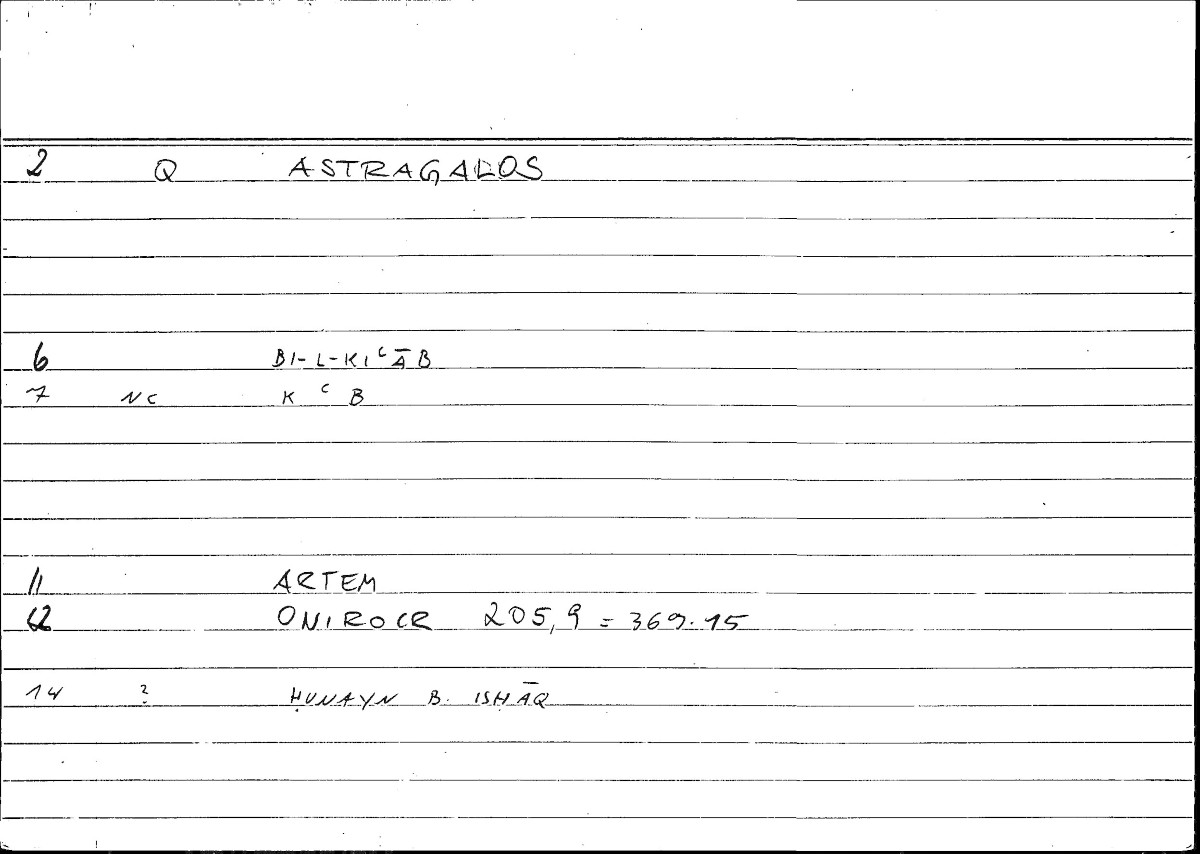 2 Q ASTRAGALOS
6 BI-L-KIᶜĀB
7 NC K ᶜ B
11 ARTEM
12 ONIROCR 205,9 = 369.15
14 ? ḤUNAYN B. ISḤĀQ